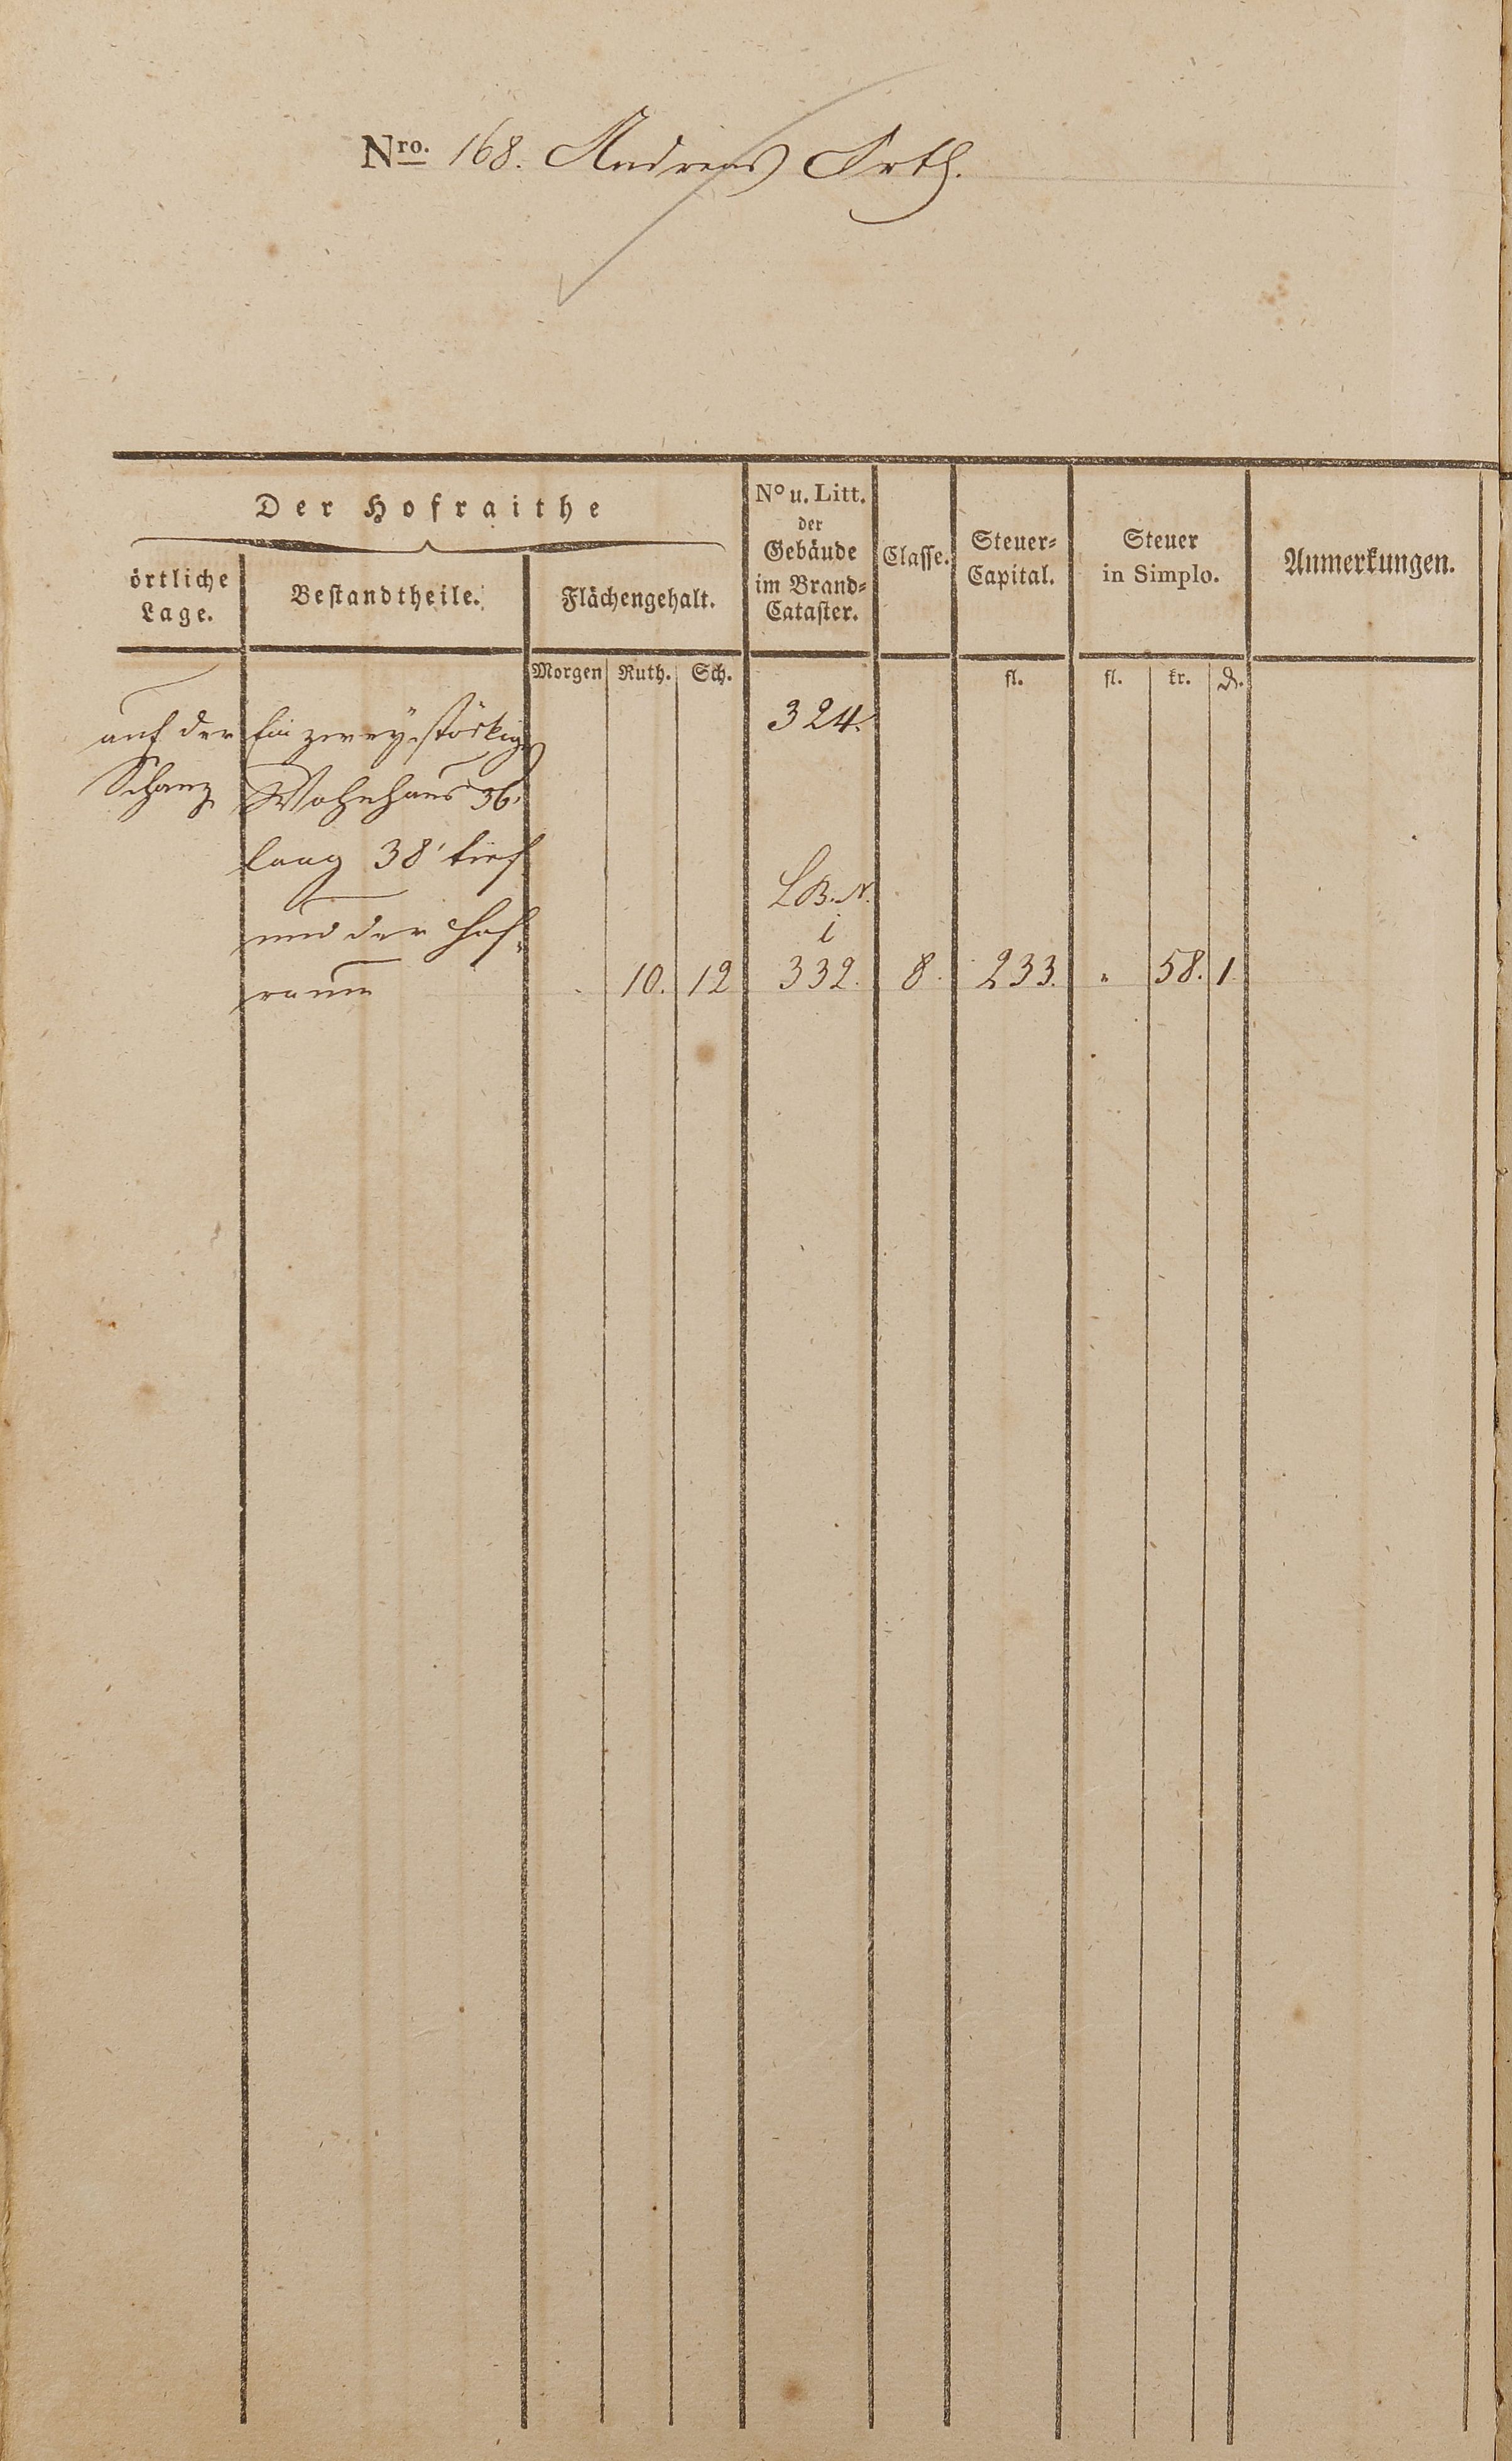 Nro. 168. Andreas Orth.
Der Hofraithe
örtliche Lage.
Bestandtheile.
Flächengehalt.
No u. Litt. der Gebäude im Brand-Cataster.
Classe.
Steuer-Capital.
Steuer in Simplo.
Anmerkungen.
Morgen Ruth. Sch. fl. fl. kr. d.
auf der Ein zwey stöckig 324.
Schanz Wohnhaus 36'
lang 38' tief
L.B.N.
und der Hof- i
raum 10. 12 332. 8. 233. " 58. 1.